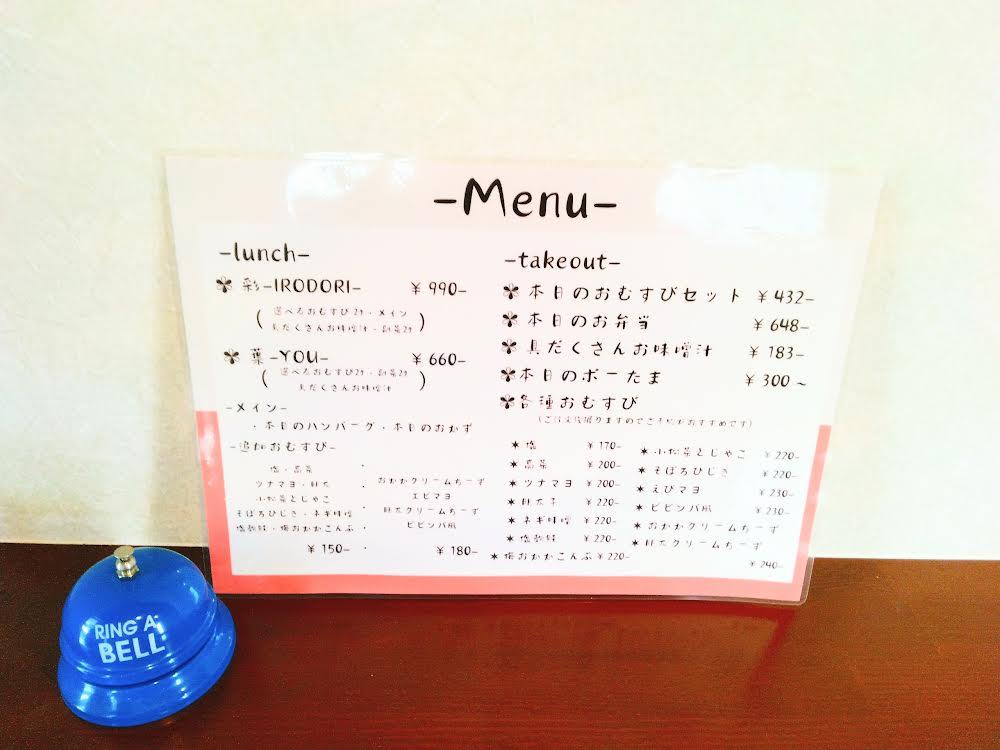 -Menu-
-lunch-
彩-IRODORI- ¥990-
(選べるおむすび2ケ・メイン
具だくさんお味噌汁・副菜2ケ)
葉-YOU- ¥660-
(選べるおむすび2ケ・副菜2ケ
具だくさんお味噌汁)
-メイン-
・本日のハンバーグ・本日のおかず
-追加おむすび-
塩・高菜
ツナマヨ・明太
小松菜とじゃこ
そぼろひじき・ネギ味噌
塩飯鮭・梅おかかこんぶ
¥150-
おかかクリームちーず
エビマヨ
明太クリームちーず
ビビンバ風
¥180-
-takeout-
本日のおむすびセット ¥432-
本日のお弁当 ¥648-
具だくさんお味噌汁 ¥183-
本日のポーたま ¥300~
各種おむすび
(ご注文後握りますのでご予約がおすすめです)
✶塩 ¥170-
✶高菜 ¥200-
✶ツナマヨ ¥200-
✶明太子 ¥220-
✶ネギ味噌 ¥220-
✶塩飯鮭 ¥220-
✶梅おかかこんぶ ¥220-
✶小松菜とじゃこ ¥220-
✶そぼろひじき ¥220-
✶えびマヨ ¥230-
✶ビビンバ風 ¥230-
✶おかかクリームちーず
✶明太クリームちーず
¥240-
RING A
BELL